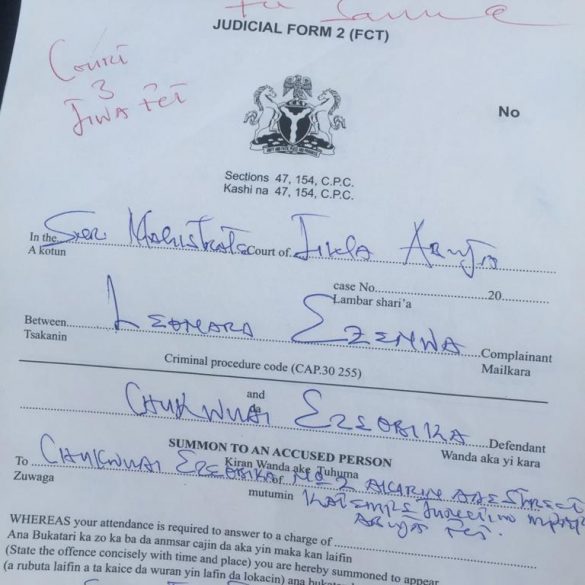 JUDICIAL FORM 2 (FCT)
Court
3
Jiwa FCT
No
Sections 47, 154, C.P.C.
Kashi na 47, 154, C.P.C.
In the Court of Jiwa Abuja
A kotun
case No. 20
Lambar shari'a
Between Leonara Ezenwa Complainant
Tsakanin Mailkara
Criminal procedure code (CAP.30 255)
and
da
Ezeobika Defendant
Wanda aka yi kara
SUMMON TO AN ACCUSED PERSON
Kiran Wanda ake Tuhuma
To Ezeobika of No 2 Street
Zuwaga mutumin Katampe Junction
Abuja FCT.
WHEREAS your attendance is required to answer to a charge of
Ana Bukatari ka zo ka ba da anmsar cajin da aka yin maka kan laifin
(State the offence concisely with time and place) you are hereby summoned to appear
(a rubuta laifin a ta kaice da wuran yin lafin da lokacin) ana